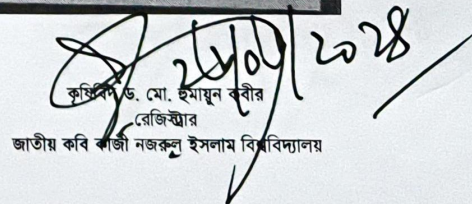 ২০২৪
কৃষিবিদ ড. মো. হুমায়ুন কবীর
রেজিস্ট্রার
জাতীয় কবি কাজী নজরুল ইসলাম বিশ্ববিদ্যালয়